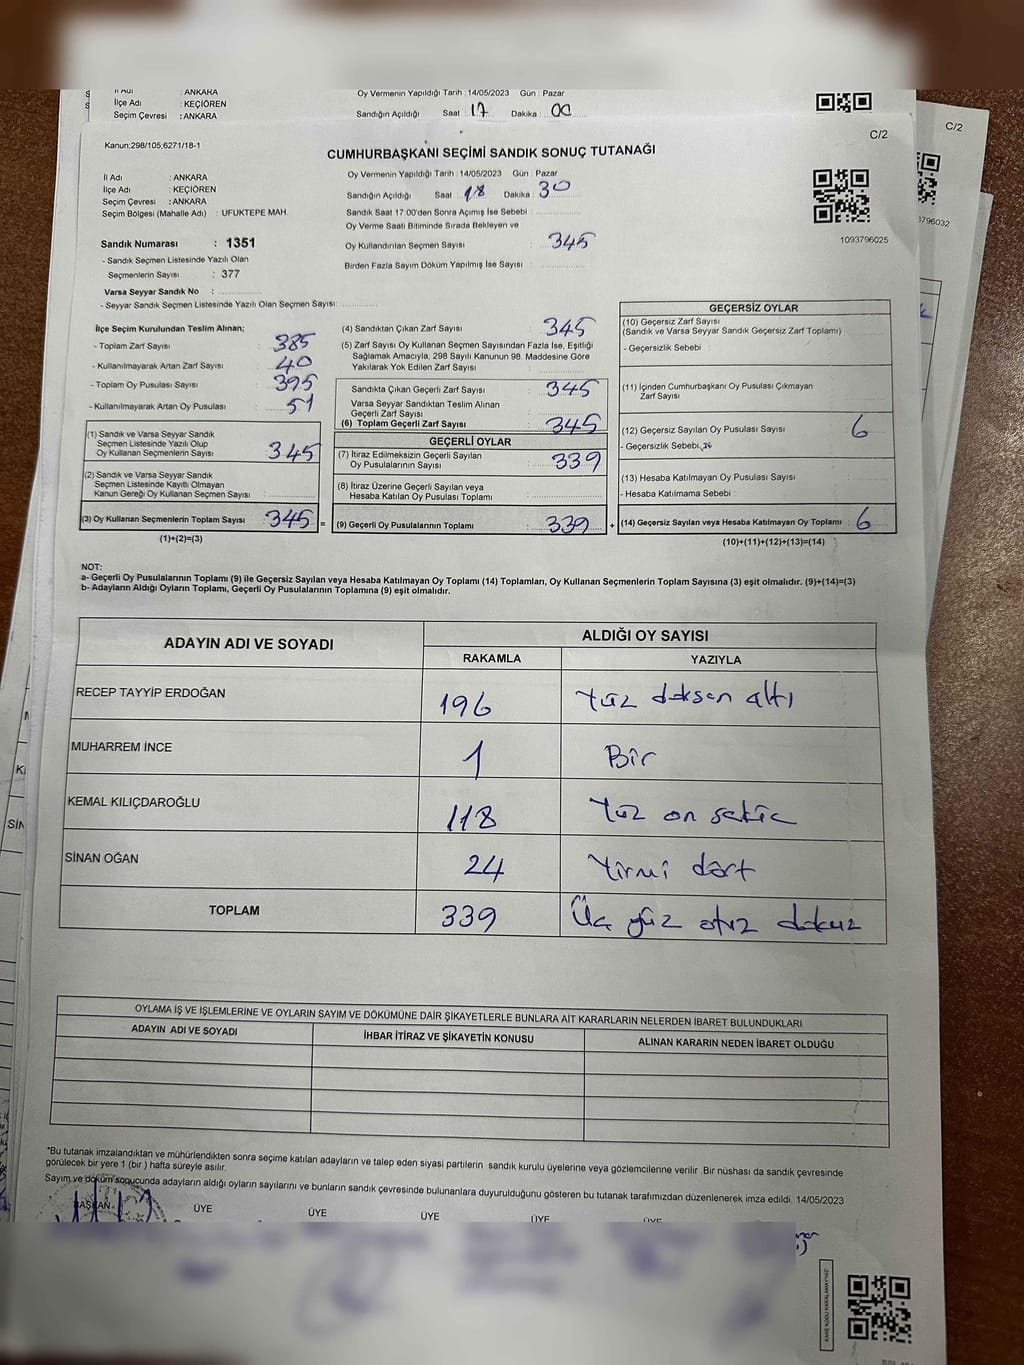 İl Adı : ANKARA
İlçe Adı : KEÇİÖREN
Seçim Çevresi : ANKARA
Oy Vermenin Yapıldığı Tarih : 14/05/2023 Gün : Pazar
Sandığın Açıldığı Saat 17 Dakika : 00
C/2
C/2
Kanun:298/105,6271/18-1
CUMHURBAŞKANI SEÇİMİ SANDIK SONUÇ TUTANAĞI
İl Adı : ANKARA
İlçe Adı : KEÇİÖREN
Seçim Çevresi : ANKARA
Seçim Bölgesi (Mahalle Adı) : UFUKTEPE MAH.
Oy Vermenin Yapıldığı Tarih : 14/05/2023 Gün : Pazar
Sandığın Açıldığı Saat 18 Dakika : 30
Sandık Saat 17:00'den Sonra Açımış İse Sebebi :
Oy Verme Saati Bitiminde Sırada Bekleyen ve
Oy Kullandırılan Seçmen Sayısı : 345
Birden Fazla Sayım Döküm Yapılmış İse Sayısı :
1093796025
3796032
Sandık Numarası : 1351
- Sandık Seçmen Listesinde Yazılı Olan
Seçmenlerin Sayısı : 377
Varsa Seyyar Sandık No :
- Seyyar Sandık Seçmen Listesinde Yazılı Olan Seçmen Sayısı:
İlçe Seçim Kurulundan Teslim Alınan;
- Toplam Zarf Sayısı : 385
- Kullanılmayarak Artan Zarf Sayısı : 40
- Toplam Oy Pusulası Sayısı : 395
- Kullanılmayarak Artan Oy Pusulası : 51
(1) Sandık ve Varsa Seyyar Sandık
Seçmen Listesinde Yazılı Olup
Oy Kullanan Seçmenlerin Sayısı : 345
(2) Sandık ve Varsa Seyyar Sandık
Seçmen Listesinde Kayıtlı Olmayan
Kanun Gereği Oy Kullanan Seçmen Sayısı :
(3) Oy Kullanan Seçmenlerin Toplam Sayısı : 345 =
(1)+(2)=(3)
(4) Sandıktan Çıkan Zarf Sayısı : 345
(5) Zarf Sayısı Oy Kullanan Seçmen Sayısından Fazla İse, Eşitliği
Sağlamak Amacıyla, 298 Sayılı Kanunun 98. Maddesine Göre
Yakılarak Yok Edilen Zarf Sayısı :
Sandıkta Çıkan Geçerli Zarf Sayısı : 345
Varsa Seyyar Sandıktan Teslim Alınan
Geçerli Zarf Sayısı :
(6) Toplam Geçerli Zarf Sayısı : 345
GEÇERLİ OYLAR
(7) İtiraz Edilmeksizin Geçerli Sayılan
Oy Pusulalarının Sayısı : 339
(8) İtiraz Üzerine Geçerli Sayılan veya
Hesaba Katılan Oy Pusulası Toplamı :
(9) Geçerli Oy Pusulalarının Toplamı : 339 +
GEÇERSİZ OYLAR
(10) Geçersiz Zarf Sayısı
(Sandık ve Varsa Seyyar Sandık Geçersiz Zarf Toplamı)
- Geçersizlik Sebebi :
(11) İçinden Cumhurbaşkanı Oy Pusulası Çıkmayan
Zarf Sayısı :
(12) Geçersiz Sayılan Oy Pusulası Sayısı : 6
- Geçersizlik Sebebi
(13) Hesaba Katılmayan Oy Pusulası Sayısı :
- Hesaba Katılmama Sebebi :
(14) Geçersiz Sayılan veya Hesaba Katılmayan Oy Toplamı : 6
(10)+(11)+(12)+(13)=(14)
NOT:
a- Geçerli Oy Pusulalarının Toplamı (9) ile Geçersiz Sayılan veya Hesaba Katılmayan Oy Toplamı (14) Toplamları, Oy Kullanan Seçmenlerin Toplam Sayısına (3) eşit olmalıdır. (9)+(14)=(3)
b- Adayların Aldığı Oyların Toplamı, Geçerli Oy Pusulalarının Toplamına (9) eşit olmalıdır.
ADAYIN ADI VE SOYADI
ALDIĞI OY SAYISI
RAKAMLA YAZIYLA
RECEP TAYYİP ERDOĞAN 196 Yüz doksan altı
MUHARREM İNCE 1 Bir
KEMAL KILIÇDAROĞLU 118 Yüz on sekiz
SİNAN OĞAN 24 Yirmi dört
TOPLAM 339 Üç yüz otuz dokuz
OYLAMA İŞ VE İŞLEMLERİNE VE OYLARIN SAYIM VE DÖKÜMÜNE DAİR ŞİKAYETLERLE BUNLARA AİT KARARLARIN NELERDEN İBARET BULUNDUKLARI
ADAYIN ADI VE SOYADI İHBAR İTİRAZ VE ŞİKAYETİN KONUSU ALINAN KARARIN NEDEN İBARET OLDUĞU
*Bu tutanak imzalandıktan ve mühürlendikten sonra seçime katılan adayların ve talep eden siyasi partilerin sandık kurulu üyelerine veya gözlemcilerine verilir. Bir nüshası da sandık çevresinde
görülecek bir yere 1 (bir ) hafta süreyle asılır.
Sayım ve döküm sonucunda adayların aldığı oyların sayılarını ve bunların sandık çevresinde bulunanlara duyurulduğunu gösteren bu tutanak tarafımızdan düzenlenerek imza edildi. 14/05/2023
BAŞKAN ÜYE ÜYE ÜYE ÜYE ÜYE